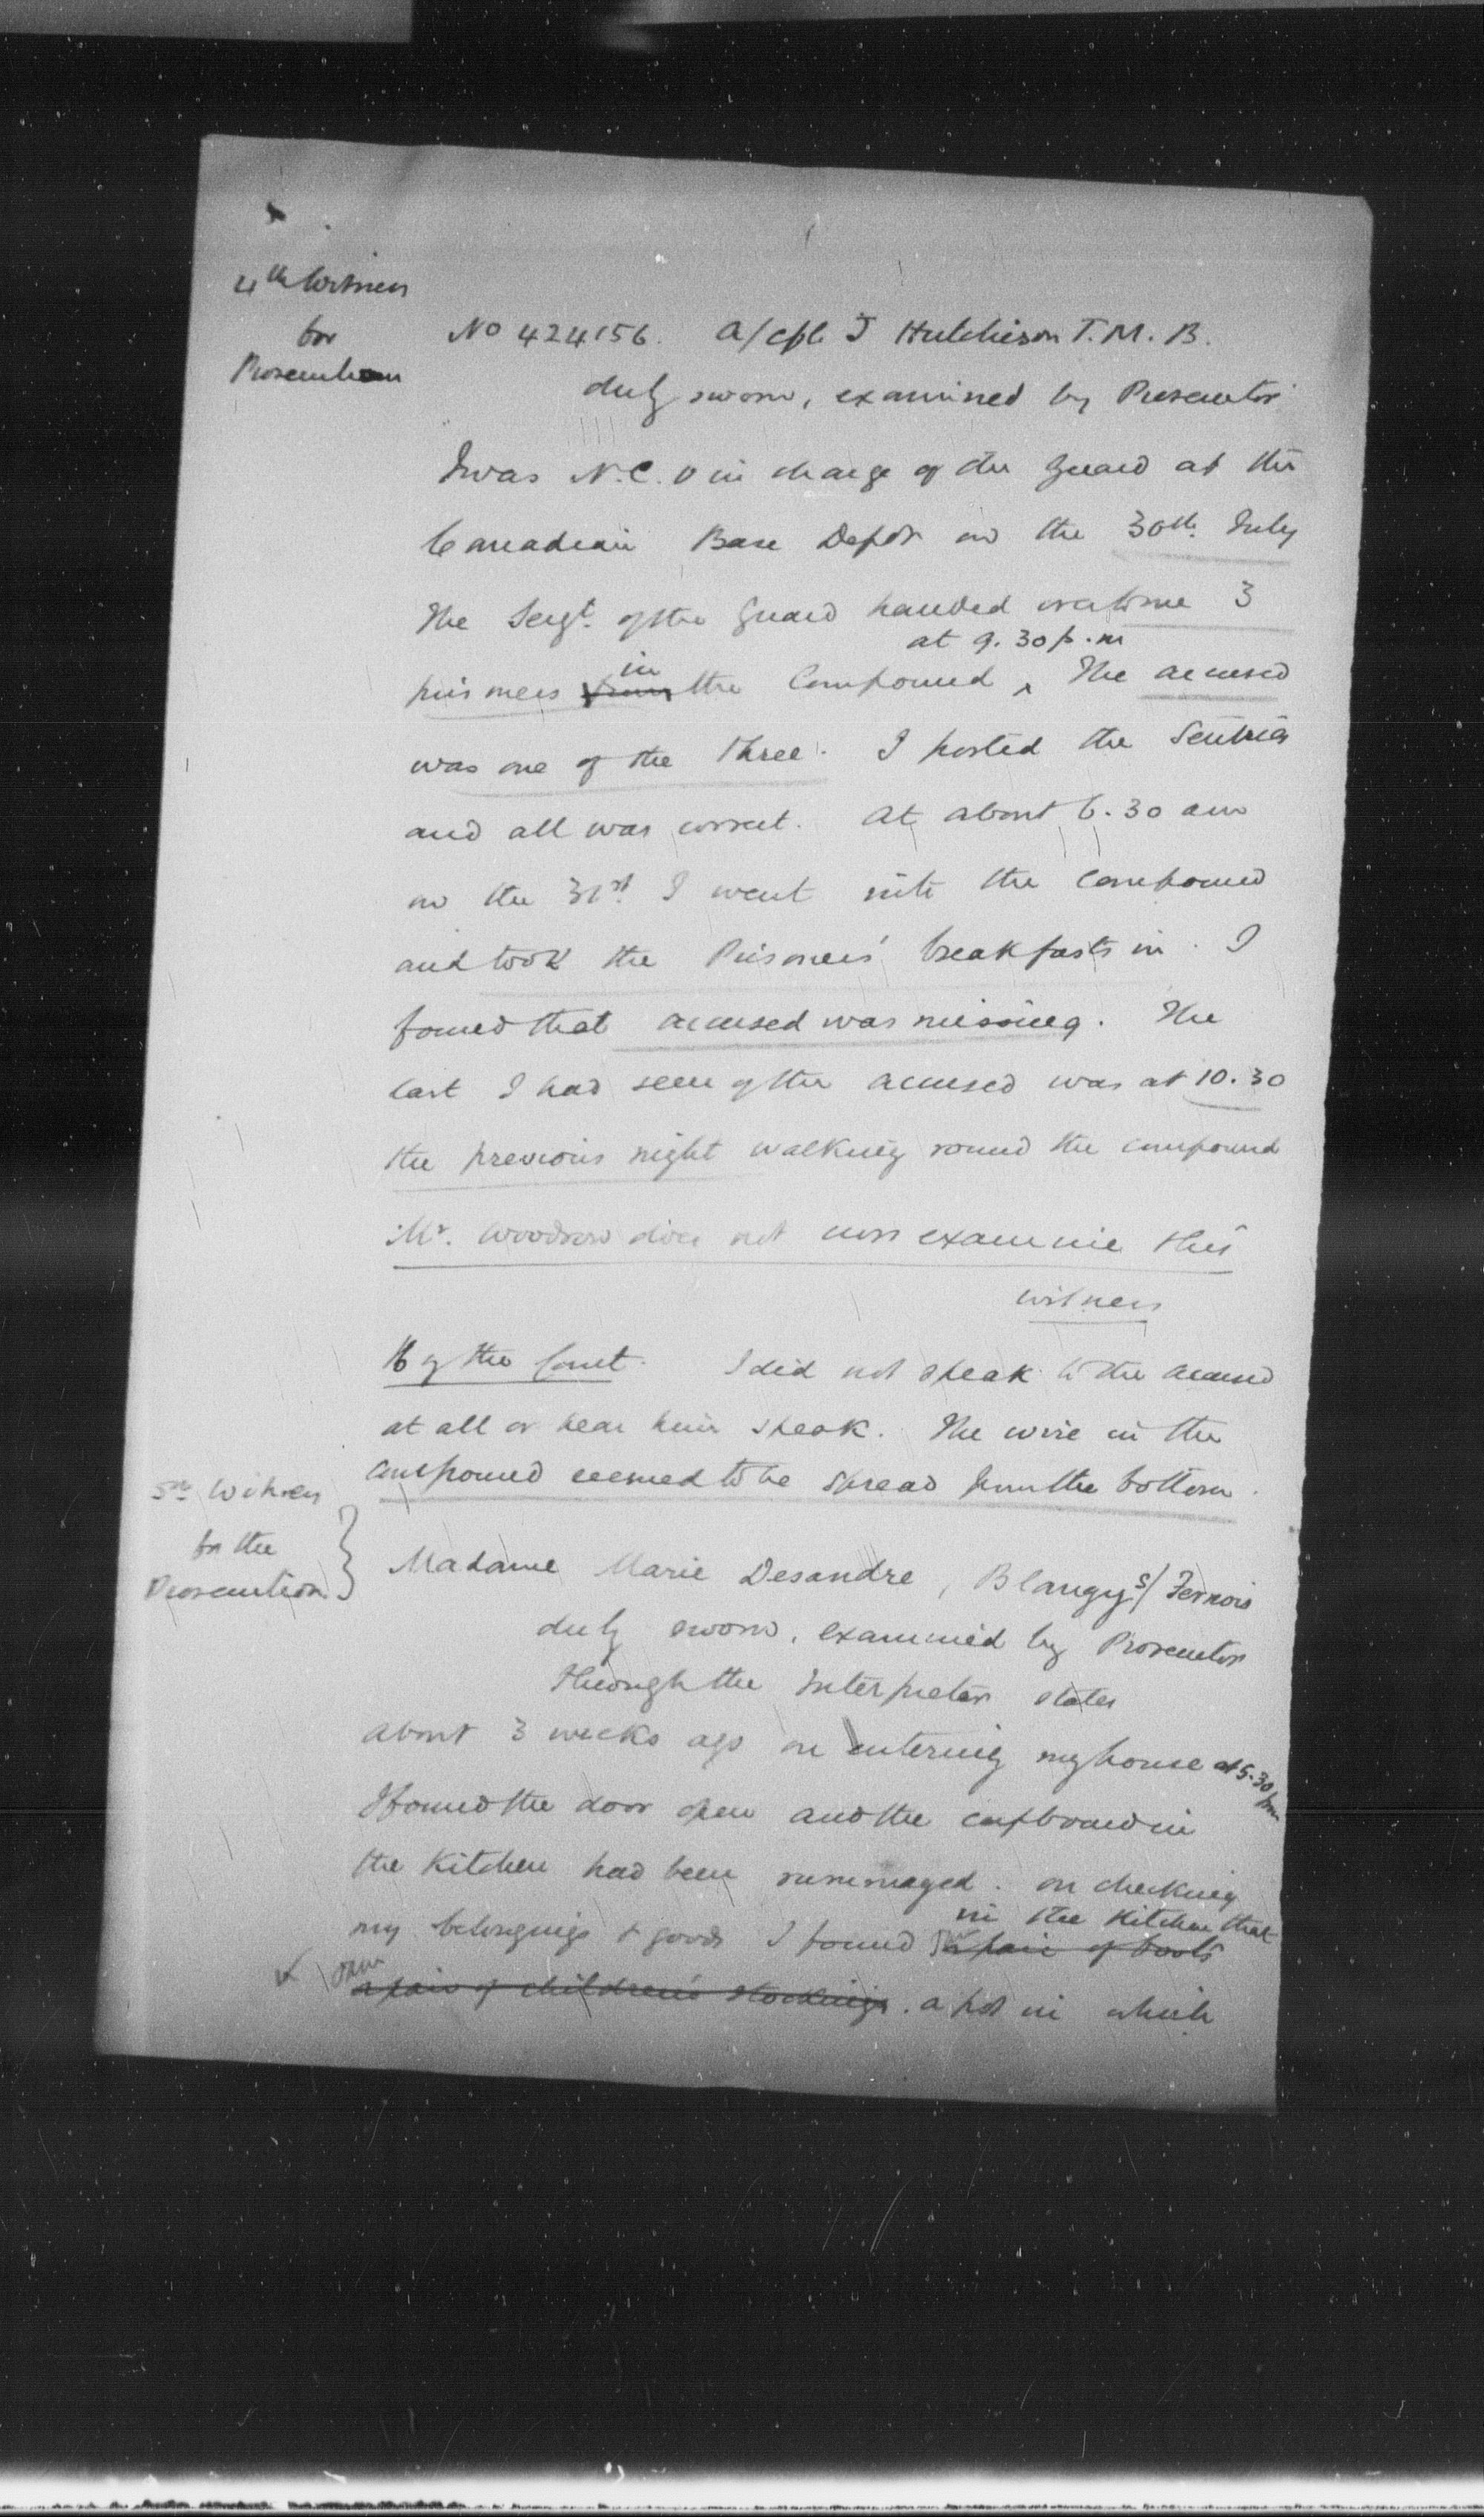 4th Witness
for
Prosecution
No 424156. A/Cpl. J Hutchison T.M.B.
duly sworn, examined by Prosecutor
I was N.C.O in charge of the Guard at the
Canadian Base Depot on the 30th. July
The Sergt. of the Guard handed over to me 3
at 9.30 p.m
in
prisoners from the Compound ‸ The accused
was one of the three. I posted the Sentries
and all was correct. At about 6.30 am
on the 31st. I went into the compound
and took the Prisoners' breakfasts in. I
found that accused was missing. The
last I had seen of the accused was at 10.30
the previous night walking round the compound
Mr. Woodrow does not cross examine this
witness
By the Court. I did not speak to the accused
at all or hear him speak. The wire in the
compound seemed to be spread from the bottom.
5th Witness
for the
Prosecution
Madame Marie Desandre, Blangy s/ Ternois
duly sworn, examined by Prosecutor
through the Interpreter states
About 3 weeks ago on entering my house at 5.30 pm
I found the door open and the cupboard in
the Kitchen had been rummaged. On checking
in the Kitchen that
my belongings & goods I found a pair of boots
a pair of children's stockings. a pot in which